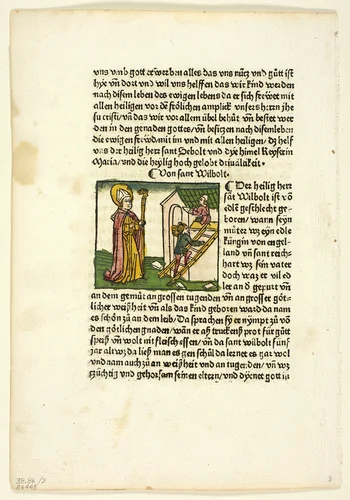 vns vmb gott erwerben alles das vns nücz vnd gůtt ist
hye vnd dort vnd wil vns helffen das wir kind werden
nach disem leben des ewigen lebens da er sich frewet mit
allen heiligen vor dē frölichen amplick vnsers hrrn jhe
su cristi/ vn̄ das wir vor allem übel behůt vn̄ bestet wer
den in den genaden gottes/ vn̄ besiczen nach disem leben
die ewigen frewd mit im vnd mit allen heiligen/ dz helf
vns der heilig herr sant Sebolt vnd dye himel Keyserin
Maria/ vnd die heylig hoch gelobt driualtikeit.
Von sant Wilbolt.
Der heilig herr
sāt Wilbolt ist vō
edlē geschlecht ge-
boren/ wann seyn
můter wz eyn edle
küngin von engel-
land vn̄ sant reich-
hart wz sein vater
doch waz er vil ed
ler an d gepurt vn̄
an dem gemüt an grossen tugenden vn̄ an grosser göt-
licher weißheit vn̄ als das kind geboren ward da nam
es schön zů an dem leib/ Da sprachen sy er nympt zů vō
den götlichen gnaden/ wān er aß truckenß prot für gůtt
speiß vn̄ wolt nit fleisch essen/ vn̄ da sant wilbolt fünf
jar alt wz da ließ man es gen schůl da lernet es gar wol
vnd nam auch zů an weißheit vnd an tugenden/ vn̄ wz
züchtig vnd gehorsam seinen eltern/ vnd dyenet gott in
38.86/3
3